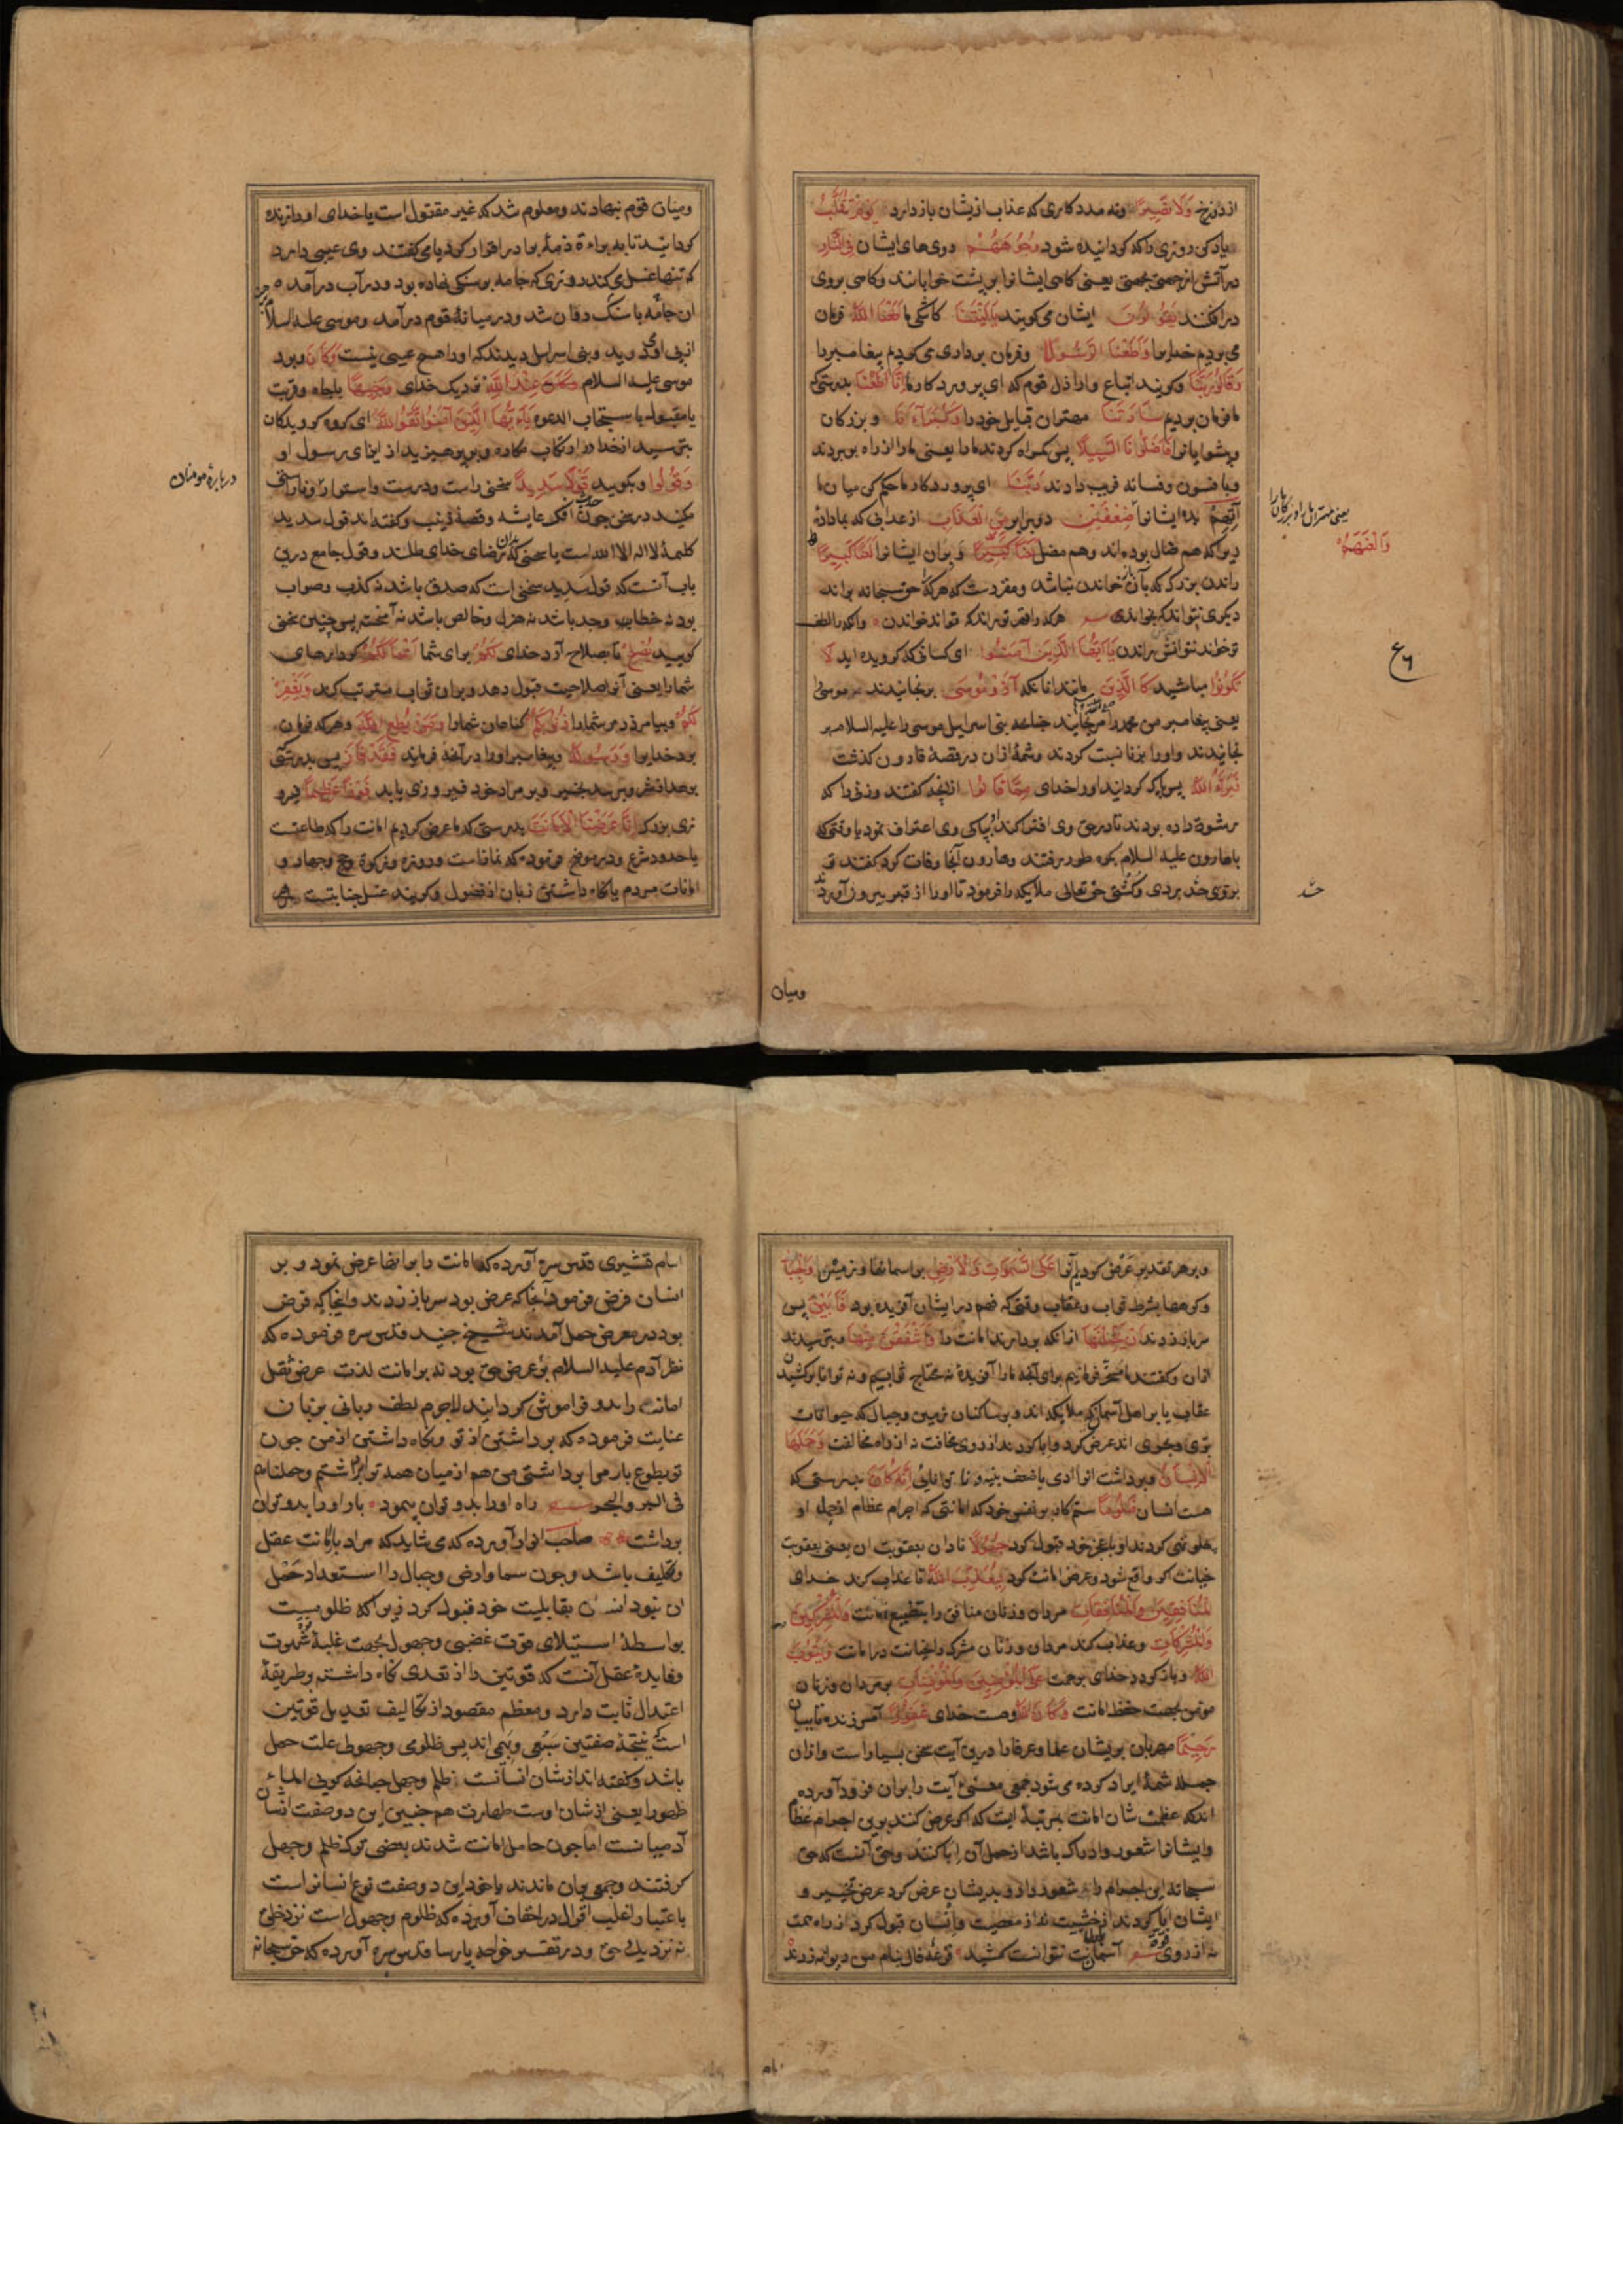 از دوزخ وَلَا نَصِيرًا و نه مددکاری که عذاب ازیشان باز دارد يَوْمَ تُقَلَّبُ
یاد کن روزی را که گردانیده شود وُجُوهُهُمْ روی‌های ایشان فِي النَّارِ
در آتش از جهتی بجهتی یعنی گاهی ایشانرا بر پشت خوابانند و گاهی بروی
در افکنند يَقُولُونَ ایشان می‌گویند يَا لَيْتَنَا کاشکی ما أَطَعْنَا اللَّهَ فرمان
می‌بردیم خدایرا وَأَطَعْنَا الرَّسُولَا و فرمان برداری می‌کردیم پیغامبر را
وَقَالُوا رَبَّنَا و گویند اتباع و اراذل قوم که ای پروردگار ما إِنَّا أَطَعْنَا بدرستی که
ما فرمان بردیم سَادَتَنَا مهتران قبایل خود را وَكُبَرَاءَنَا و بزرگان
و پیشوایانرا فَأَضَلُّونَا السَّبِيلَا پس گمراه کردند ما را یعنی ما را از راه ببردند
و بافسون و فسانه فریب دادند رَبَّنَا ای پروردگار ما حکم کن میان ما
آتِهِمْ بده ایشانرا ضِعْفَيْنِ دو برابر مِنَ الْعَذَابِ از عذابی که بما داده
زیرا که هم ضال بوده‌اند و هم مضل لَعْنًا كَبِيرًا و بران ایشانرا لَعْنًا كَبِيرًا
راندن بزرگ که با آن خواندن نباشد و مقررست که هر که را حق سبحانه براند
دیگری نتواند که بخواندی هر که را قهر تو براند که تواند خواندن و آنکه را لطف
تو خواند نتوانش راندن يَا أَيُّهَا الَّذِينَ آمَنُوا ای کسانی که گرویده‌اید لَا
تَكُونُوا مباشید كَالَّذِينَ مانند آنانکه آذَوْا مُوسَى برنجانیدند موسی را
یعنی پیغامبر من محمد را مرنجانید چنانچه بنی اسراییل موسی را علیه السلام
نجانیدند و او را بزنا نسبت کردند و شمهٔ ازان در قصهٔ قارون گذشت
فَبَرَّأَهُ اللَّهُ پس پاک گردانید او را خدای مِمَّا قَالُوا از آنچه گفتند و زنی را که
رشوة داده بودند تا در حق وی افترا کند بپاکی وی اعتراف نمود یا وقتی که
با هارون علیه السلام بکوه طور برفتند و هارون آنجا وفات کرد گفتند تو
بروی حسد بردی و کشتی حق تعالی ملایکه را فرمود تا او را از قبر بیرون آوردند
یعنی مهتران ما را و بزرگان ما را
وَالْعَنْهُمْ
ع ٦
ومیان
ومیان قوم نهادند و معلوم شد که غیر مقتول است یا خدای او را زنده
گردانید تا به براءة ذمهٔ او اقرار کرد یا می‌گفتند وی عیبی دارد
که تنها غسل می‌کند روزی که جامه بر سنگی نهاده بود و در آب درآمده
آن جامه با سنگ روان شد و در میانهٔ قوم درآمد و موسی علیه السلام
از پی او می‌دوید و بنی اسراییل دیدند که او را هیچ عیبی نیست وَكَانَ و بود
موسی علیه السلام عِنْدَ اللَّهِ نزدیک خدای وَجِيهًا با جاه و قربت
یا مقبول یا مستجاب الدعوه يَا أَيُّهَا الَّذِينَ آمَنُوا اتَّقُوا اللَّهَ ای گروه گرویدگان
بترسید از خدا در ارتکاب مکاره و بپرهیزید از ایذای رسول او
وَقُولُوا و بگویید قَوْلًا سَدِيدًا سخنی راست و درست و استوار و ناراستی
مکنید در سخن چون حدیث افک عایشه و قصهٔ زینب و گفته‌اند قول سدید
کلمهٔ لا اله الا الله است یا سخنی که بدان رضای خدای طلبند و قول جامع درین
باب آنست که قول سدید سخنی است که صدق باشد نه کذب و صواب
بود نه خطا و جد باشد نه هزل و خالص باشد نه آمیخته پس چنین سخنی
گویید يُصْلِحْ تا بصلاح آرد خدای لَكُمْ برای شما أَعْمَالَكُمْ کردارهای
شما را یعنی آنرا صلاحیت قبول دهد و بران ثواب مترتب کند وَيَغْفِرْ
لَكُمْ و بیامرزد مر شما را ذُنُوبَكُمْ گناهان شما را وَمَنْ يُطِعِ اللَّهَ و هر که فرمان
برد خدایرا وَرَسُولَهُ و پیغامبر او را در آنچه فرمایند فَقَدْ فَازَ پس بدرستی
که بر مراد خود فیروزی یابد فَوْزًا عَظِيمًا فیرو
زی بزرگ إِنَّا عَرَضْنَا الْأَمَانَةَ بدرستی که ما عرض کردیم امانت را که طاعتست
یا حدود شرع و فرموده که نمازست و روزه و زکوة و حج و جهاد و
امانات مردم یا نگاه داشتن زبان از فضول و گویند غسل جنابتست
دربارهٔ مومنان
و بر هر تقدیر عرض کردیم آنرا عَلَى السَّمَوَاتِ وَالْأَرْضِ بر اسمانها و زمین وَالْجِبَالِ
و کوهها بشرط ثواب و عقاب وقتی که فهم در ایشان آفریده بود فَأَبَيْنَ پس
سر باز زدند أَنْ يَحْمِلْنَهَا از انکه بردارند امانت را وَأَشْفَقْنَ مِنْهَا و بترسیدند
ازان و گفتند ما مسخر فرمانیم برای آنچه ما را آفریدهٔ نه محتاج ثوابیم و نه توانا بر کشیدن
عقاب یا بر اهل آسمان که ملایکه‌اند و بر ساکنان زمین و جبال که حیوانات
بری و بحری اند عرض کرد و ابا کردند از روی مخافت نه از راه مخالفت وَحَمَلَهَا
الْإِنْسَانُ و برداشت آنرا آدمی با ضعف بنیه و ناتوانایی إِنَّهُ كَانَ بدرستی که
هست انسان ظَلُومًا ستم کار بر نفس خود که امانتی که اجرام عظام از حمل او
پهلو تهی کردند او با عجز خود قبول کرد جَهُولًا نادان بعقوبت آن یعنی بعقوبت
خیانت اگر واقع شود و عرض امانت کرد لِيُعَذِّبَ اللَّهُ تا عذاب کند خدای
الْمُنَافِقِينَ وَالْمُنَافِقَاتِ مردان و زنان منافق را بتضییع امانت وَالْمُشْرِكِينَ
وَالْمُشْرِكَاتِ و عذاب کند مردان و زنان مشرک را بخیانت در امانت وَيَتُوبَ
اللَّهُ و باز گردد خدای برحمت عَلَى الْمُؤْمِنِينَ وَالْمُؤْمِنَاتِ بر مردان و زنان
مومن بجهت حفظ امانت وَكَانَ اللَّهُ و هست خدای غَفُورًا آمرزنده تایبان
رَحِيمًا مهربان بریشان علما و عرفا را درین آیت سخن بسیار است و ازان
جمله شمهٔ ایراد کرده می‌شود جمعی معنی آیت را بران فرود آورده
اند که عظمت شان امانت بمرتبهٔ ایست که اگر عرض کنند برین اجرام عظام
و ایشانرا شعور و ادراک باشد از حمل آن ابا کنند و حق آنست که حق
سبحانه این اجرام را شعور داد و بدیشان عرض کرد عرض تخییر و
ایشان ابا کردند از خشیت نه از معصیت و انسان قبول کرد از راه همت
نه از روی قوت آسمان بار امانت نتوانست کشید قرعهٔ فال بنام من دیوانه زدند
امام قشیری قدس سره آورده که امانت را بر آنها عرض نمود و بر
انسان فرض فرمود آنجا که عرض بود سر باز زدند و اینجا که فرض
بود در معرض حمل آمدند شیخ جنید قدس سره فرموده که
نظر آدم علیه السلام بر عرض حق بود نه بر امانت لذت عرض ثقل
امانت را بدو فراموش گردانید لاجرم لطف ربانی بزبان
عنایت فرموده که برداشتن از تو و نگاه داشتن از من چون
تو بطوع بار مرا برداشتی من هم از میان همه ترا برداشتم و حملناهم
فی البر والبحر راه او را بدو توان پیمود بار او را بدو توان
برداشت صاحب انوار آورده که می‌شاید که مراد بامانت عقل
و تکلیف باشد و چون سما و ارض و جبال را استعداد حمل
آن نبود انسان بقابلیت خود قبول کرد زیرا که ظلومیت
بواسطهٔ استیلای قوت غضبی و جهول بجهت غلبهٔ شهوت
و فایدهٔ عقل آنست که قوتین را از تعدی نگاه داشته بطریقهٔ
اعتدال ثابت دارد و معظم مقصود از تکالیف تعدیل قوتین
است که نتیجهٔ صفتین سبعی و بهیمی اند پس ظلومی و جهولی علت حمل
باشد و گفته‌اند از شان انسانست ظلم و جهل چنانچه گویی الماء
طهور یعنی از شان اوست طهارت هم چنین این دو صفت از شان
آدمیانست اما چون حامل امانت شدند بعضی ترک ظلم و جهل
گرفتند و جمعی بران ماندند یا خود این دو صفت نوع انسانراست
باعتبار اغلب اقوال در احقاف آورده که ظلوم و جهول است نزد خلق
نه نزدیک حق و در تفسیر خواجه پارسا قدس سره آورده که حق سبحانه